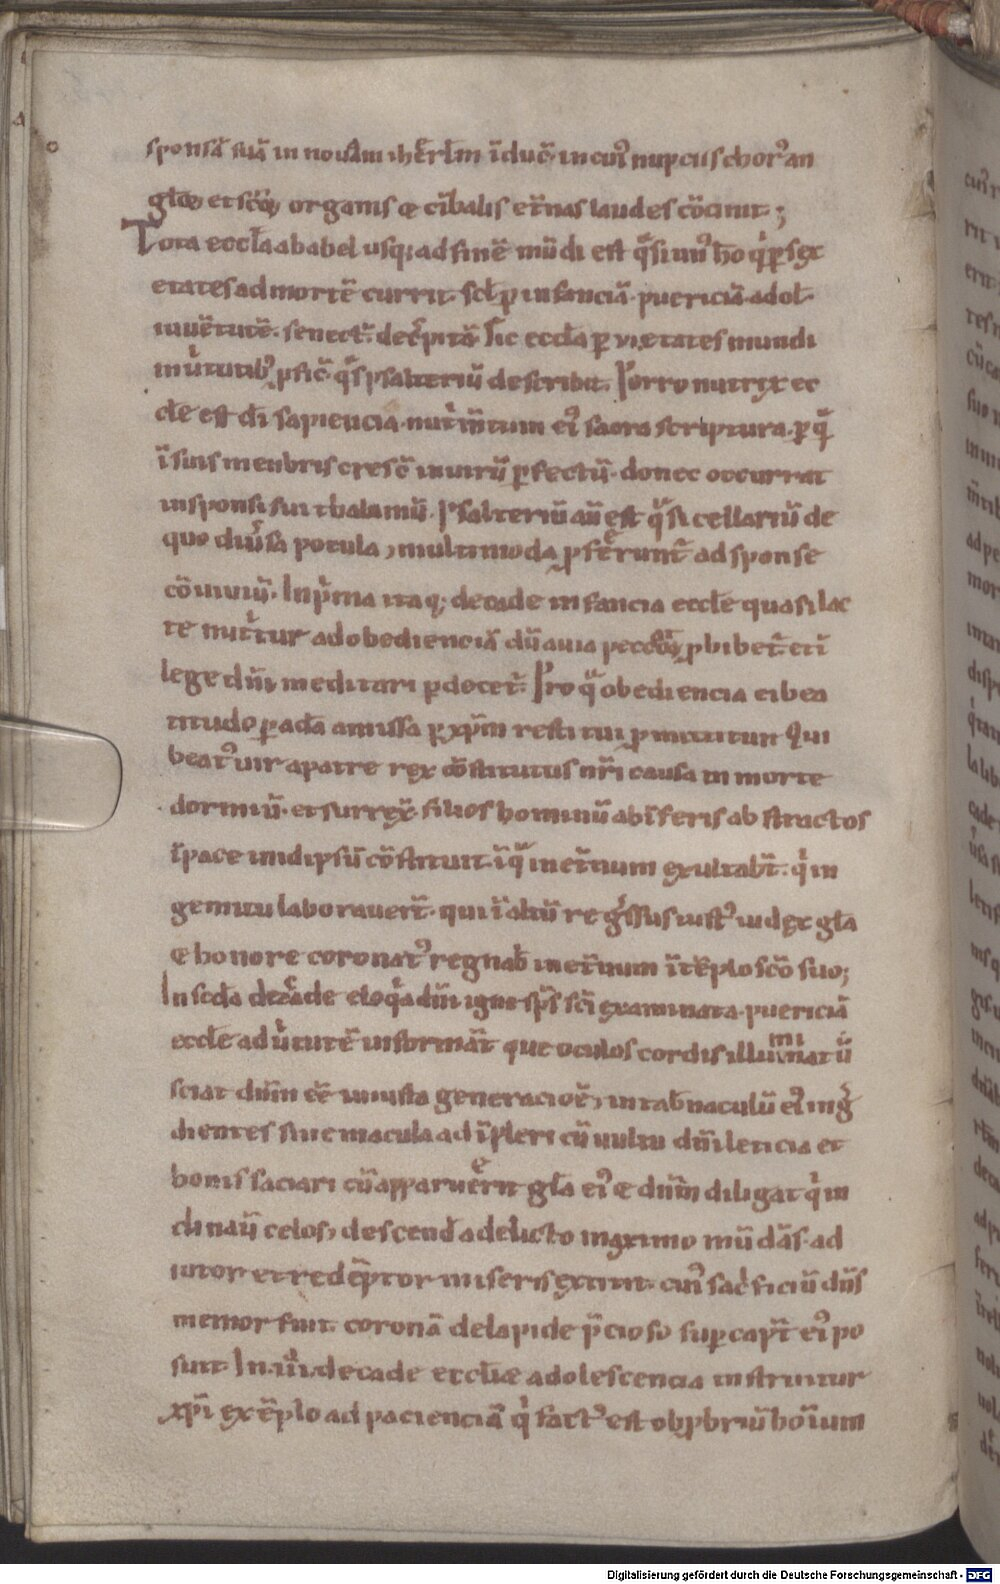 sponsā suā in nouam ihērl̄m īduc̄· in cuiꝰ nupciis chorꝰ an
gl̄oꝝ et sc̄oꝝ organis ⁊ cībalis et̄nas laudes cōcinit·;
Tota eccl̄a ab abel usq; ad finē mūdi est q̄si unꝰ ho͞ q̇ ꝑ sex
etates ad mortē currit· scl̄ ꝑ infanciā· puericiā· adol̄·
iuuētutē· senect̄· decͥpitā· sic eccl̄a ꝑ vi etates mundi
in uͥtutibꝰ ꝓfic̄· qͣs psalteriū describit· Porro nutrix ec
cl̄e est di͞ sapiencia· nutͥm̄tum eiꝰ sacra scriptura· ꝑ qͣ
ī suis menbris cresc̄ in uirū ꝑfectū· donec occurrat
in sponsi sui thalamū· Psalteriū aū est qͣsi cellariū de
quo diuͥsa pocula, multimoda ꝓferunt̄ ad sponse
cōuiuiū· In pͥma itaq; decade infancia eccl̄e quasi lac
te nutͥtur ad obedienciā dū a uia peccōꝝ ꝓhibet̄ et ī
lege dn͞i meditari ꝑdocet̄· Pro qͣ obediencia ei bea
titudo ꝑ adā amissa ꝑ xp͞m restitui ꝓmittitur Qui
beatꝰ uir a patre rex cōstitutus nr͞i causa in morte
dormiū· et surrex̄· filios hominū ab īferis abstractos
ī pace in idipsū cōstituit· ī qͣ in et̄num exultab̄t· qͥ in
gemitu laborauer̄t· qui ī altū regͥssus iustꝰ iudex gl̄a
⁊ honore coronatꝰ regnab̄ in et̄num ī tēplo sc͞o suo;
In sc͞da decade eloqͥa dn͞i igne sp͞s sc͞i examinata· puericiā
eccl̄e ad uͥtutē informāt que oculos cordis illuminatū
sciat dn͞m ēē in iusta generacioē, in tab̄naculū eiꝰ ingͥ
dientes sine macula adīpleri cū uultu dn͞i leticia et
bonis saciari cū apparuerit gl̄a eiꝰ ⁊ dn͞m diligat qͥ in
clinauͥ celos, descend̄ a delicto maximo mūdās· ad
iutor et redēptor miseris extitit· cuiꝰ sacͥficiū dn͞s
memor fuit· coronā de lapide p̄cioso suꝑ capt̄ eiꝰ po
suit· In· iii· decade eccl̄iæ adolescencia instruitur
xp͞i exēplo ad pacienciā qͥ factꝰ est obꝓbriū hoīum
Digitalisierung gefördert durch die Deutsche Forschungsgemeinschaft - DFG